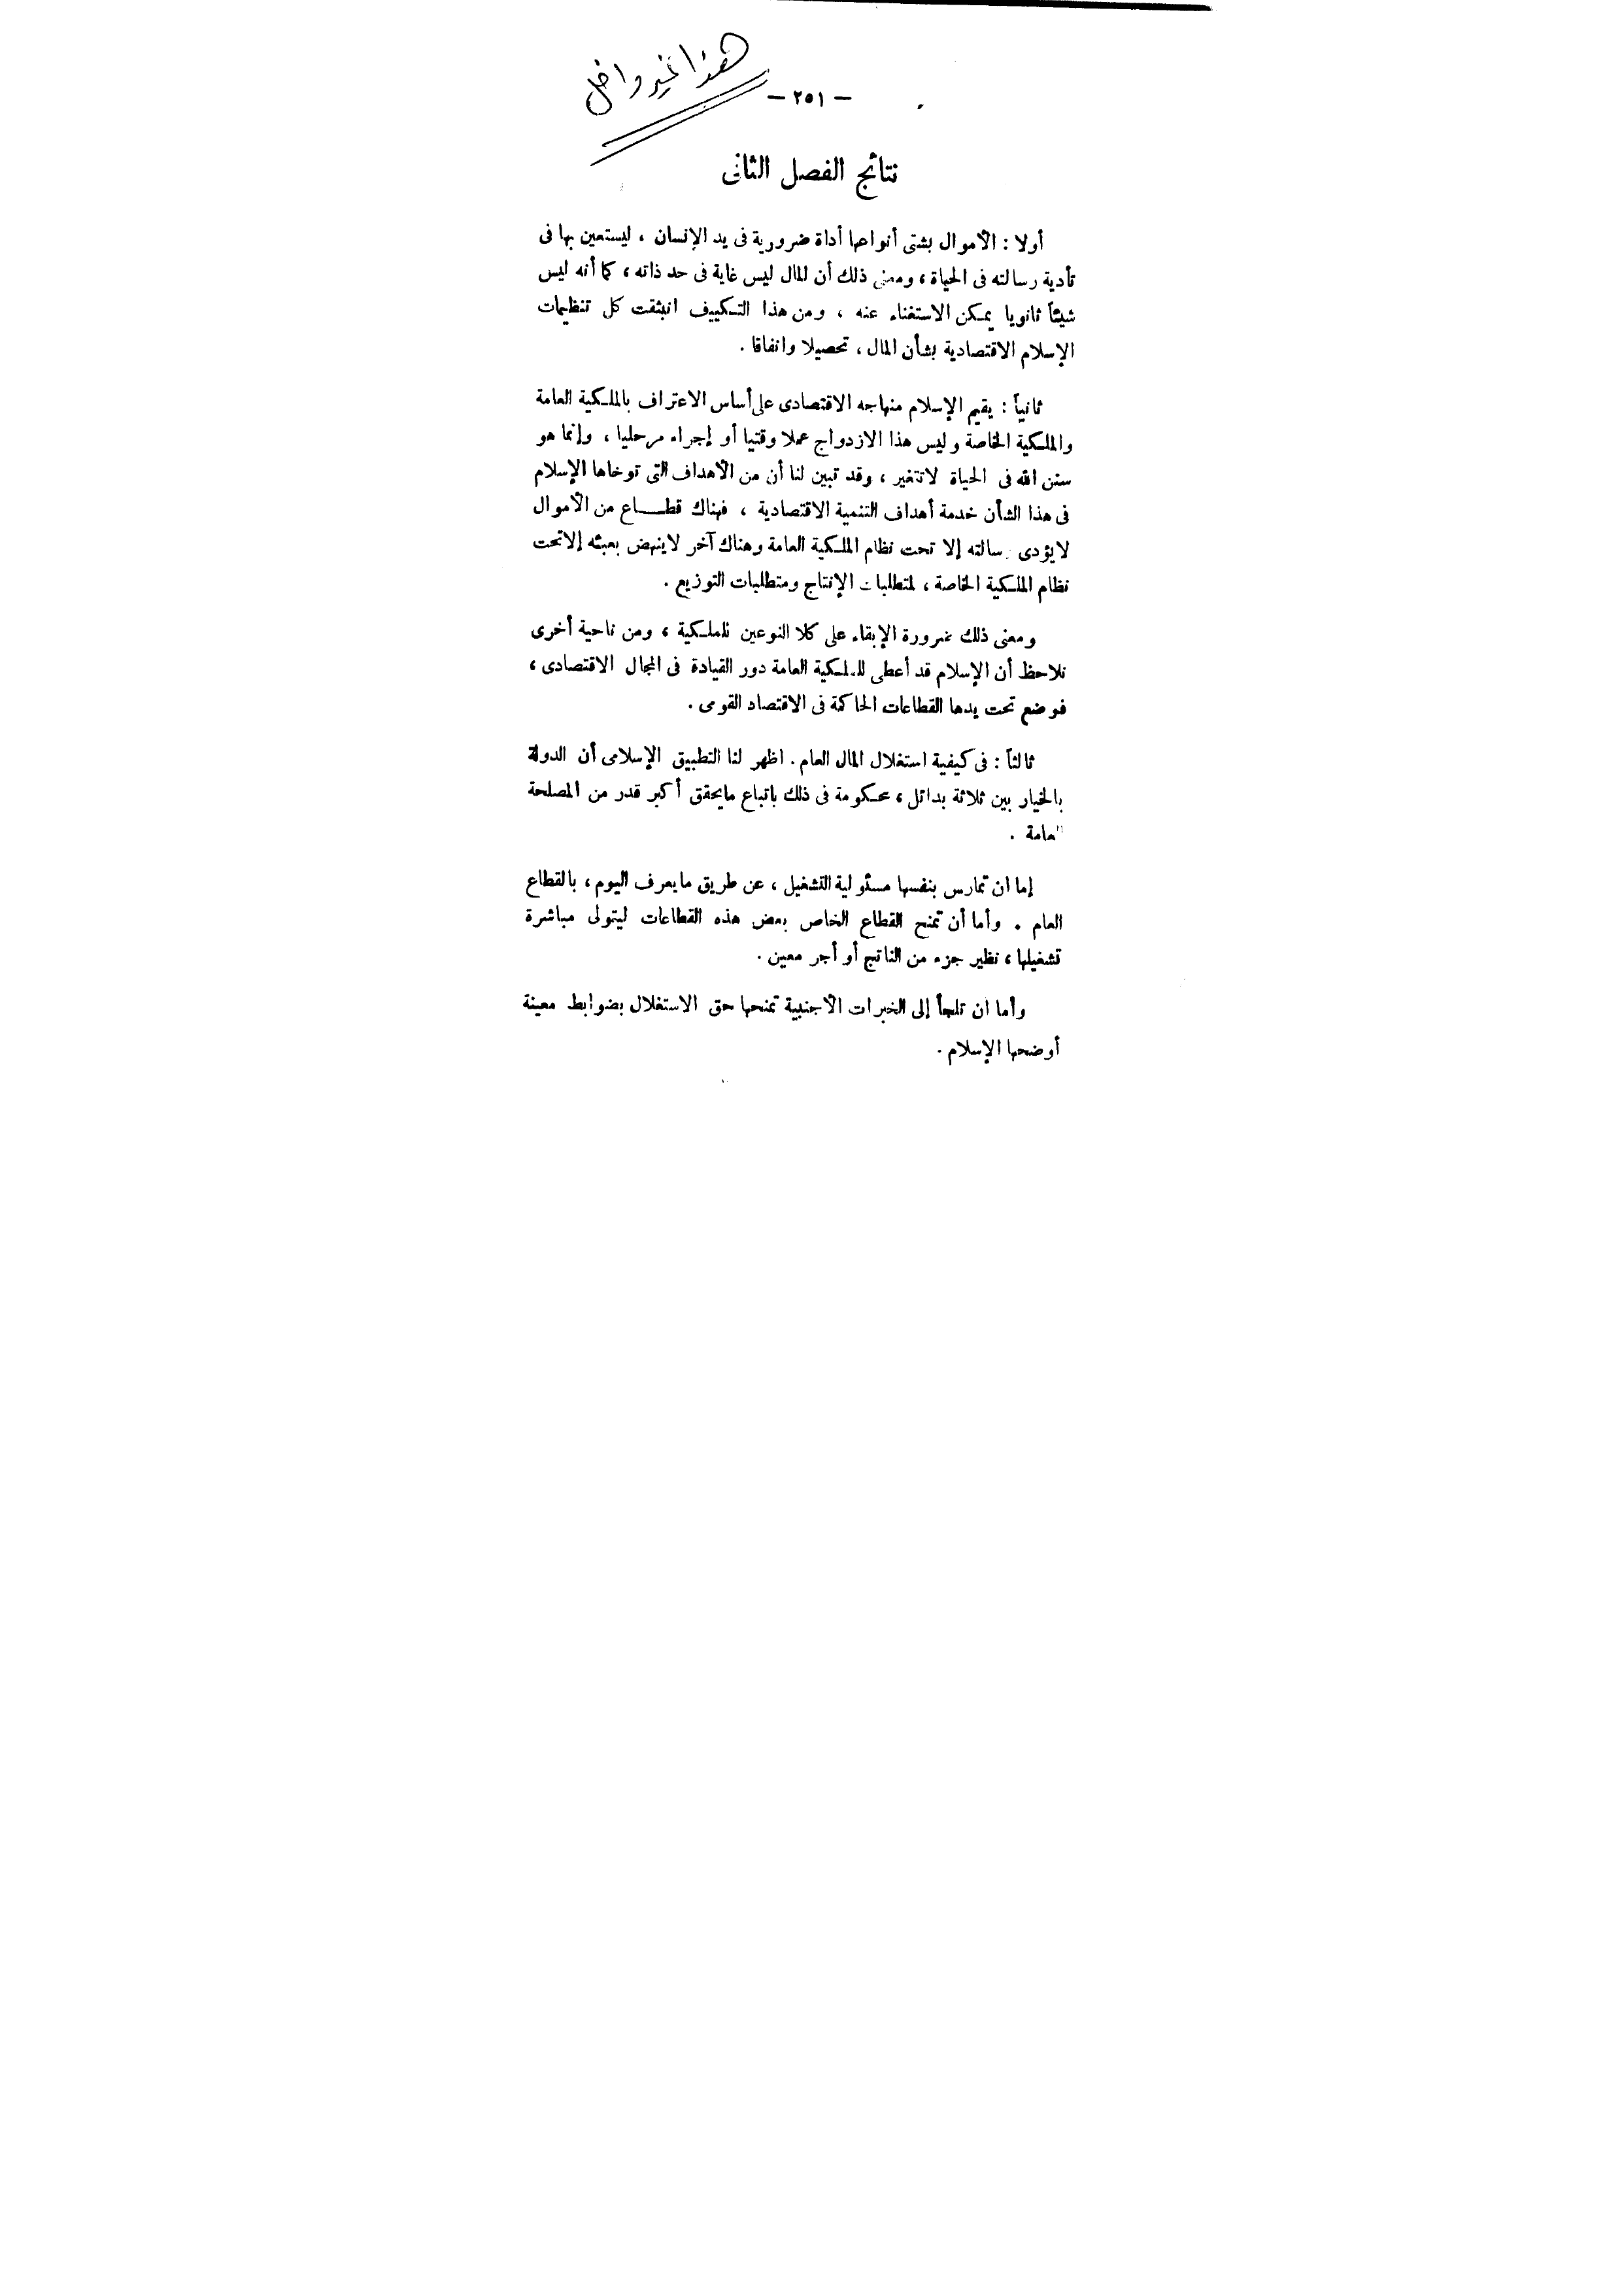 هذا غير داخل
— ٢٥١ —
نتائج الفصل الثانى
أولا : الأموال بشتى أنواعها أداة ضرورية فى يد الإنسان ، ليستعين بها فى
تأدية رسالته فى الحياة ، ومعنى ذلك أن المال ليس غاية فى حد ذاته ، كما أنه ليس
شيئاً ثانويا يمكن الاستغناء عنه ، ومن هذا التكييف انبثقت كل تنظيمات
الإسلام الاقتصادية بشأن المال ، تحصيلا وانفاقا .
ثانياً : يقيم الإسلام منهاجه الاقتصادى على أساس الاعتراف بالملكية العامة
والملكية الخاصة وليس هذا الازدواج عملا وقتيا أو إجراء مرحليا ، وإنما هو
سنن الله فى الحياة لاتتغير ، وقد تبين لنا أن من الأهداف التى توخاها الإسلام
فى هذا الشأن خدمة أهداف التنمية الاقتصادية ، فهناك قطاع من الأموال
لايؤدى رسالته إلا تحت نظام الملكية العامة وهناك آخر لاينهض بعبئه إلاتحت
نظام الملكية الخاصة ، لمتطلبات الإنتاج ومتطلبات التوزيع .
ومعنى ذلك ضرورة الإبقاء على كلا النوعين للملكية ، ومن ناحية أخرى
نلاحظ أن الإسلام قد أعطى للملكية العامة دور القيادة فى المجال الاقتصادى ،
فوضع تحت يدها القطاعات الحاكمة فى الاقتصاد القومى .
ثالثاً : فى كيفية استغلال المال العام . اظهر لنا التطبيق الإسلامى أن الدولة
بالخيار بين ثلاثة بدائل ، محكومة فى ذلك باتباع مايحقق أكبر قدر من المصلحة
العامة .
إما ان تمارس بنفسها مسئولية التشغيل ، عن طريق مايعرف اليوم ، بالقطاع
العام . وأما أن تمنح القطاع الخاص بعض هذه القطاعات ليتولى مباشرة
تشغيلها ، نظير جزء من الناتج أو أجر معين .
وأما ان تلجأ إلى الخبرات الأجنبية تمنحها حق الاستغلال بضوابط معينة
أوضحها الإسلام .